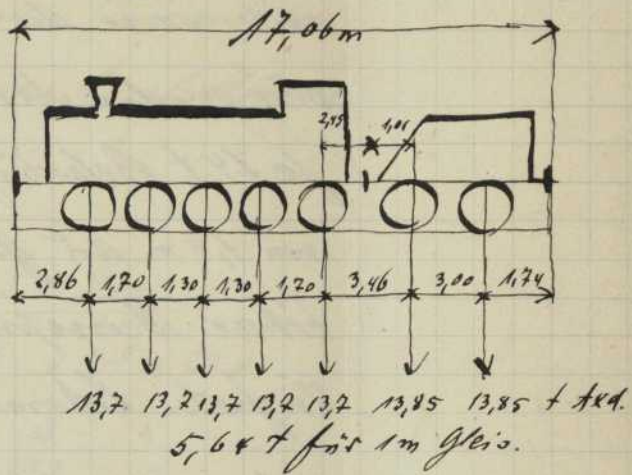 17,06m
2,45 1,01
2,86 1,70 1,30 1,30 1,70 3,46 3,00 1,74
13,7 13,7 13,7 13,7 13,7 13,85 13,85 t Axd.
5,64 t für 1m Gleis.